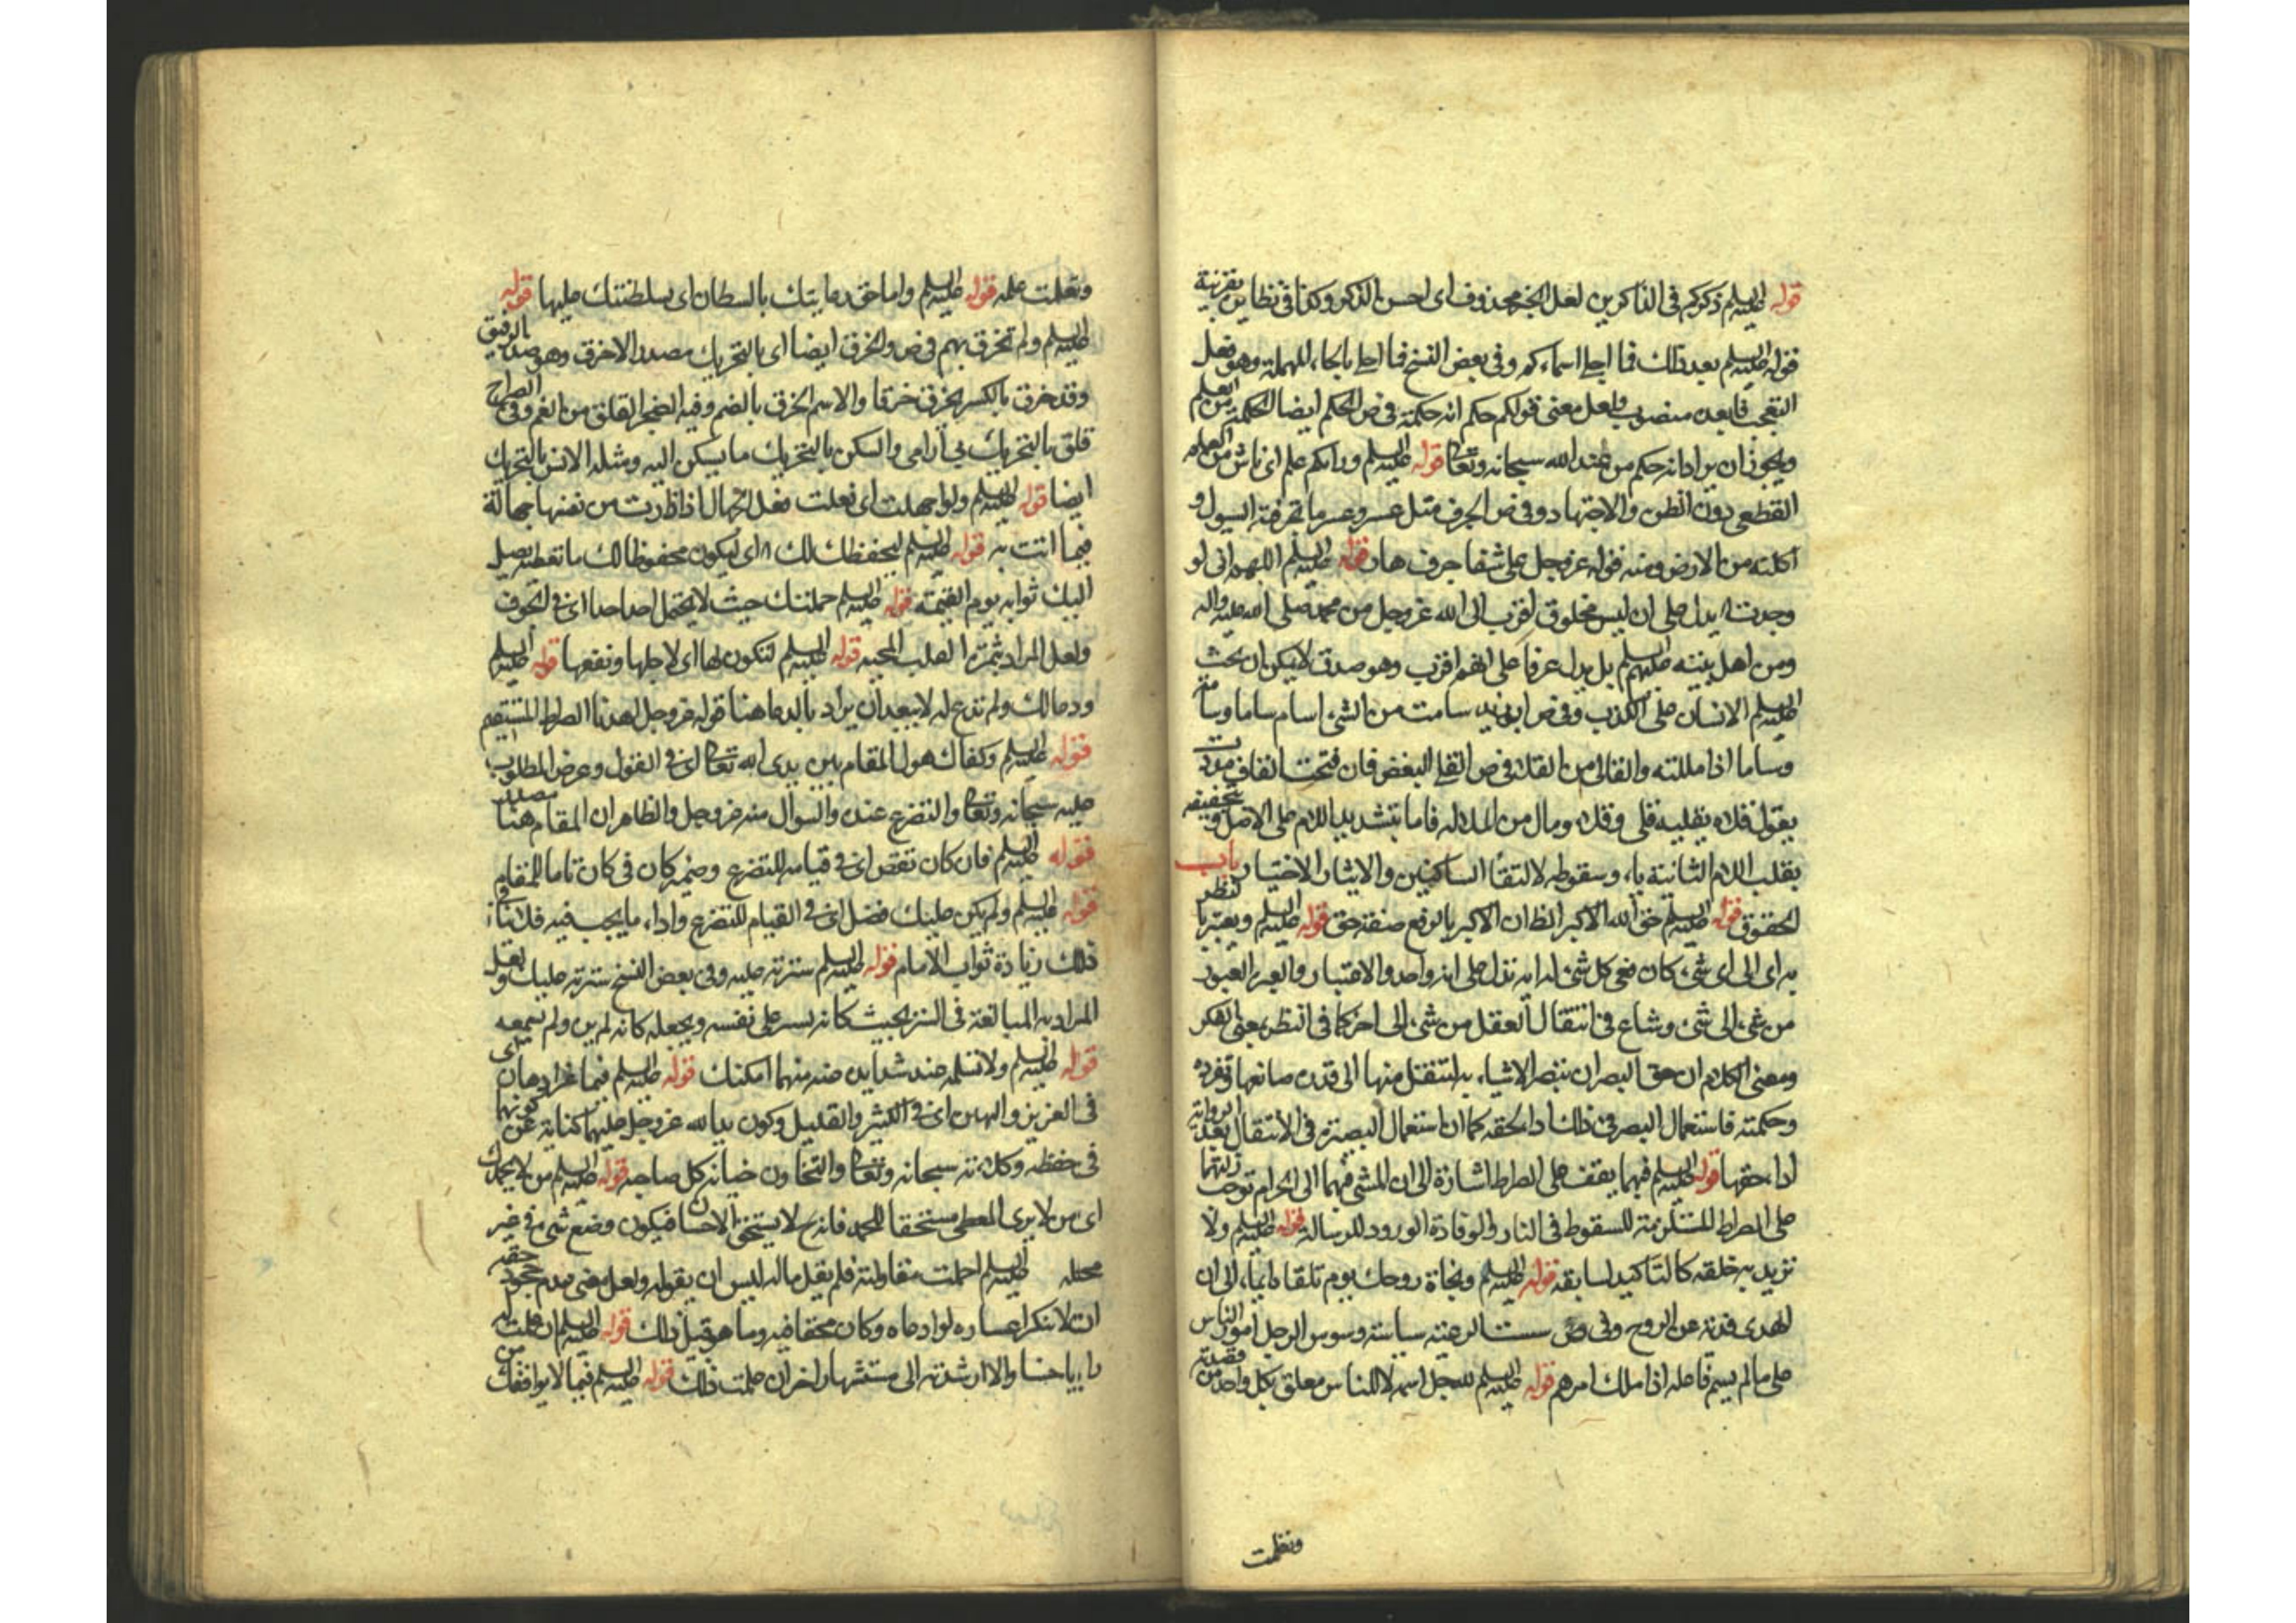 قوله عليه السلم ذكركم في الذاكرين لعل الخبر محذوف اى احسن الذكر وكذا في نظايره بقرينة
قوله عليه السلم بعد ذلك فما احلى اسماءكم وفي بعض النسخ فما اجل بالجاء المهملة وهو فعل
التعجب فما بعده منصوب ولعل معنى قولكم حكم انه حكمة في ص الحكم ايضا الحكمة من العلم
ويجوز ان يراد انه حكم من عند الله سبحانه وتعالى قوله عليه السلم ورايكم علم اى ناش من العلم
القطعي دون الظن والاجتهاد وفي ص الجرف مثل عسر وعسر ما تجرفته السيول و
اكلته من الارض ومنه قوله عز وجل على شفا جرف هار قوله عليه السلم اللهم انى لو
وجدت اه يدل على ان ليس مخلوق اقرب الى الله عز وجل من محمد صلى الله عليه واله
ومن اهل بيته عليهم السلم بل يدل عرفا على انهم اقرب وهو صدق لا يمكن ان يحث
عليه السلم الانسان على الكذب وفي ص ابو زيد سامت من الشىء اسام ساما وسامة
وساما اذا مللته والقالى من القلا في ص القلى البغض فان فتحت القاف مددت
يقول قلاه يقليه قلى وقلاء ومال من الملالة فاما بتشديد اللام على الاصل وبتخفيفه
بقلب اللام الثانية ياء وسقوطه لالتقاء الساكنين والايثار الاختيار باب
الحقوق قوله عليه السلم حق الله الاكبر الظان الاكبر بالرفع صفة حق قوله عليه السلم ويعتبر بالنظر
به اى الى اى شىء كان ففى كل شىء له اية تدل على انه واحد والاعتبار والعبر العبور
من شىء الى شىء وشاع في انتقال العقل من شىء الى اخر كما في النظر بمعنى الفكر
ومعنى الكلام ان حق البصر ان تبصر الاشياء به لتنتقل منها الى قدرة صانعها وتفرده
وحكمته فاستعمال البصر في ذلك اداء لحقه كما ان استعمال البصيرة في الانتقال بعد الرواية
اداء حقها قوله عليه السلم فبهما يقف على الصراط اشارة الى ان المشى فيهما الى الحرام توجب زلتهما
على الصراط المستلزمة للسقوط في النار والوفادة الورود للرسالة قوله عليه السلم ولا
تزيد به خلقه كالتاكيد لسابقه قوله عليه السلم ونجاة روحك يوم تلقاه ايماء الى ان
الهدى فدية عن الروح وفي ص سست الرعية سياسة وسوس الرجل امور الناس
على ما لم يسم فاعله اذا ملك امرهم قوله عليه السلم للرجل اسم لا للناس معلق بكل واحد من
ونعلمت
وتعلمت علمه قوله عليه السلم واما حق رعايتك بالسلطان اى بسلطنتك عليها قوله
عليه السلم ولم تخرق بهم في ص والخرق ايضا اى بالتحريك مصدر الاخرق وهو ضد الرفيق
وقد خرق بالكسر يخرق خرقا والاسم الخرق بالضم وفيه الضجر القلق من الغم وفي الصراح
قلق بالتحريك بى آرامى والسكن بالتحريك ما يسكن اليه ومثله الانس بالتحريك
ايضا قوله عليه السلم ولو اجهلت اى فعلت فعل الجهال اذا ظهرت من نفسها جهالة
فيما اتت به قوله عليه السلم ليحفظك لك اه اى ليكون محفوظا لك ما تعطيه يصل
اليك ثوابه يوم القيمة قوله عليه السلم حملتك حيث لا يحتمل احد احدا اى في الجوف
ولعل المراد بثمرة القلب المحبة قوله عليه السلم لتكون لها اى لاجلها ونفعها قوله عليه السلم
ودعا لك ولم تدع له لا يبعد ان يراد بالدعا هنا قوله عز وجل اهدنا الصراط المستقيم
قوله عليه السلم وكفاك هول المقام بين يدى الله تعالى اى في القول وعرض المطلوب
عليه سبحانه وتعالى والتضرع عنده والسوال منه عز وجل والظاهر ان المقام هنا مصدر
قوله عليه السلم فان كان نقص اى في قيامه للتضرع وضمير كان في كان تاما للمقام
قوله عليه السلم ولم يكن عليك فضل اى في القيام للتضرع واداء ما يجب فيه فلا ينافى
ذلك زيادة ثواب الامام قوله عليه السلم سترته عليه وفي بعض النسخ سترته عليك ولعل
المراد به المبالغة في الستر بحيث كانه يستر على نفسه ويجعله كانه لم ير ولم يسمعه
قوله عليه السلم ولا تسلمه عند شديدة منهما امكنك قوله عليه السلم فيما عز او هان اى
في العزيز والهين اى في الكثير والقليل وكون يد الله عز وجل عليهما كناية عن كونهما
في حفظه وكلائته سبحانه وتعالى والتخاون خيانة كل صاحبه قوله عليه السلم من لا يحمدك
اى من لا يرى المعطى مستحقا للحمد فانه ح لا يستحق الاحسان فيكون وضع شىء في غير
محله عليه السلم اجملت مقاولته فلم يقل ما له ليس ان يقوله ولعل معنى عدم جحود حقه
ان لا ينكر اعساره لو ادعاه وكان محقا فيه وما هو قبيل ذلك قوله عليه السلم ان علمت له
رايا حسنا والا ارشدته الى مستشهار اخر ان علمت ذلك قوله عليه السلم فيما لا يوافقك من